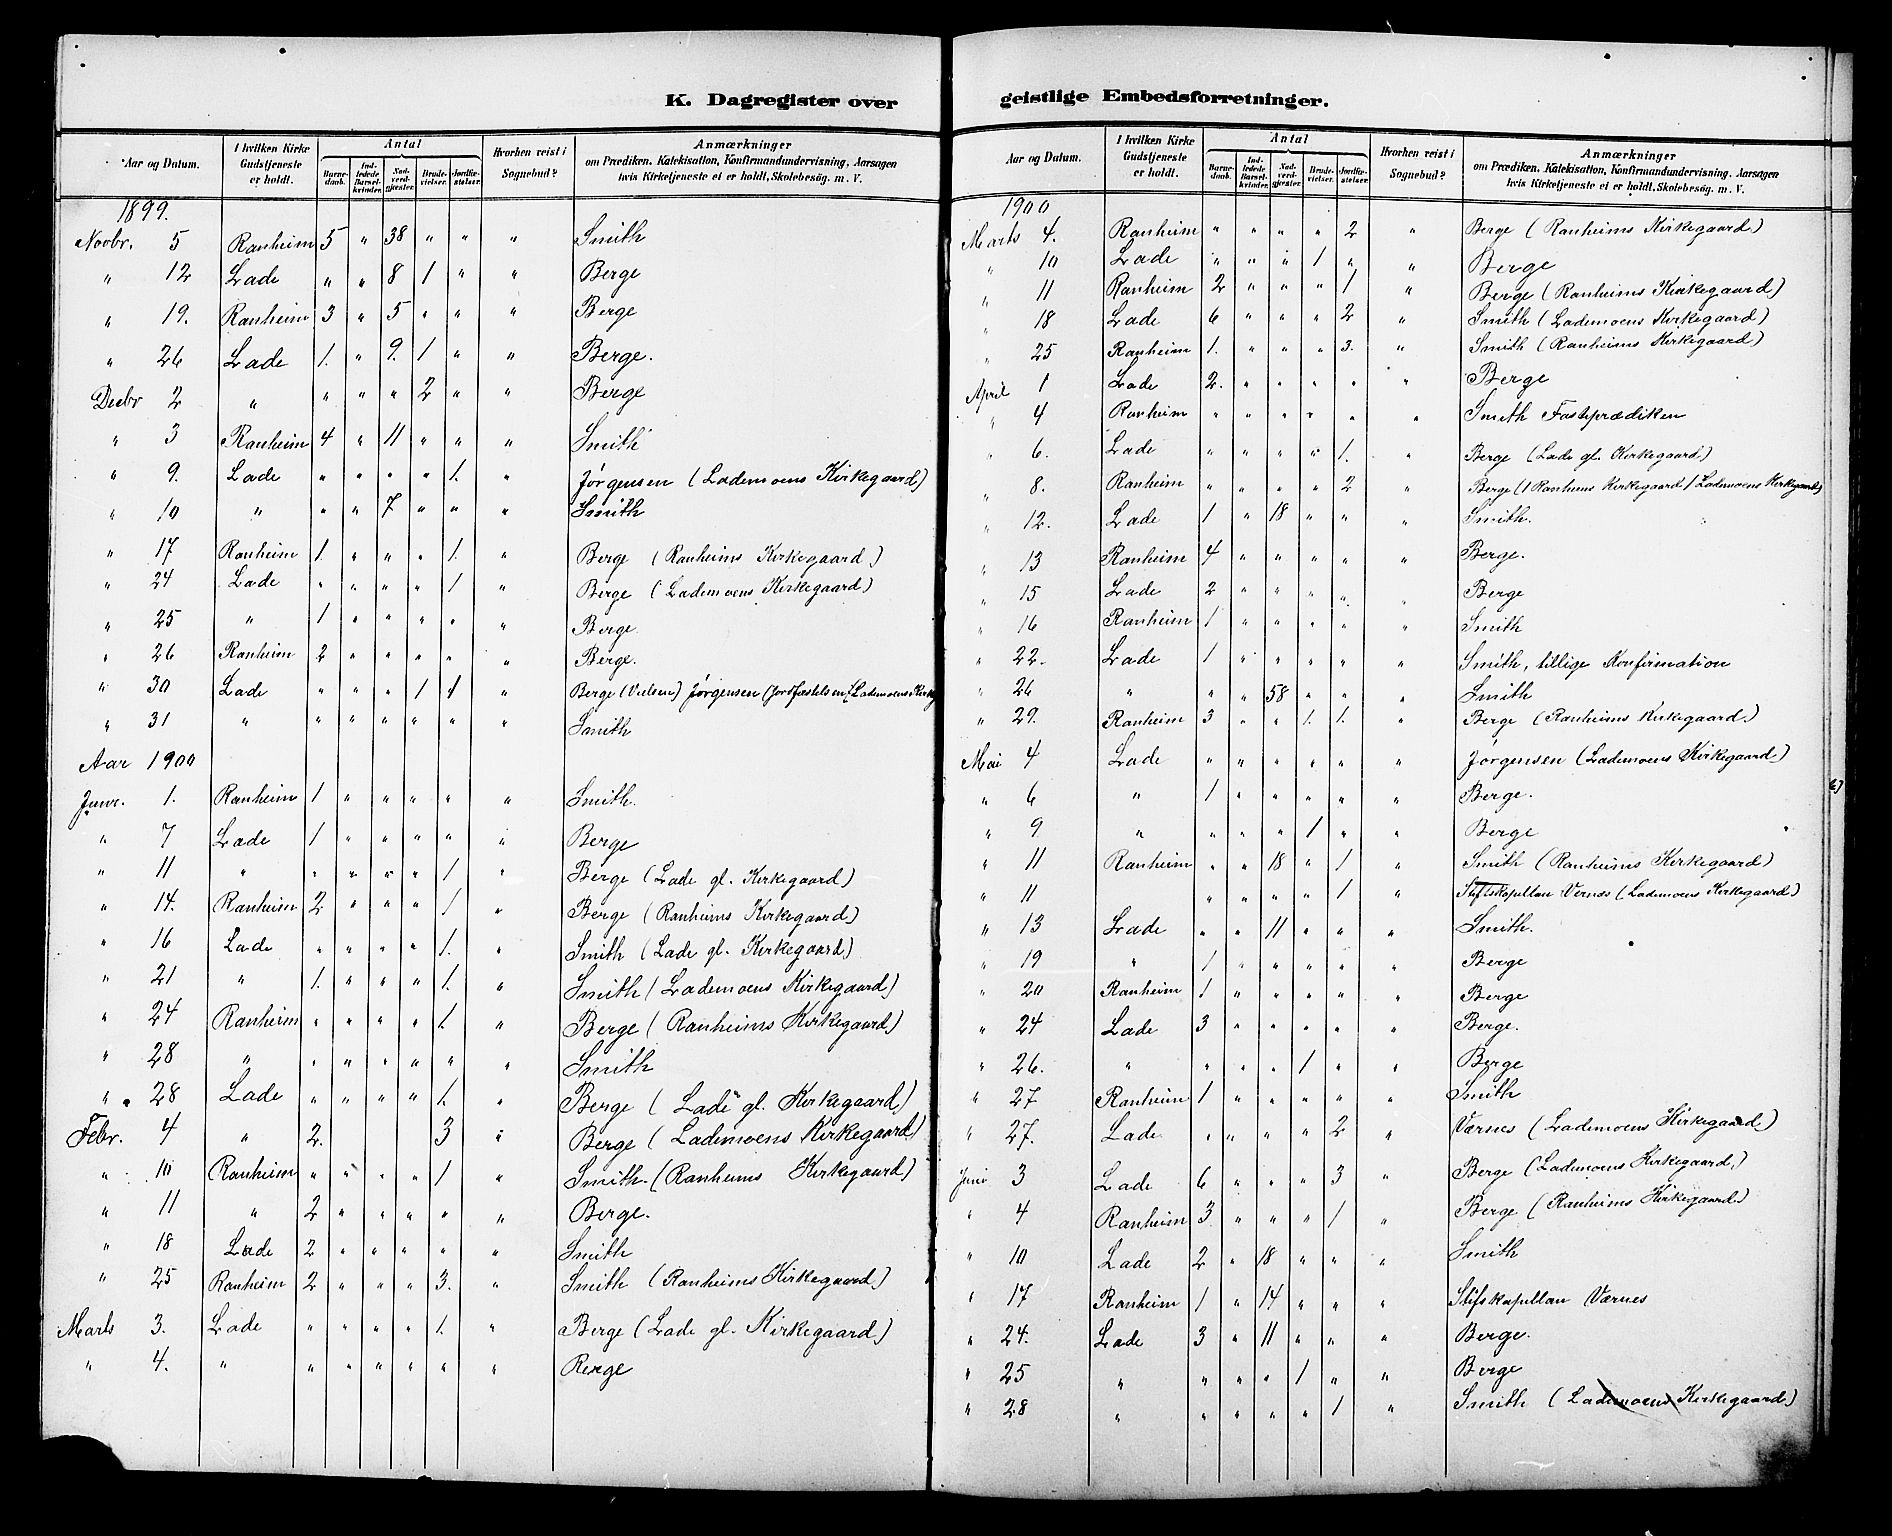 K. Dagregister over
Aar og Datum. I hvilken Kirke Gudstjeneste er holdt. Antal Barnedaab. Indledede Barselkvinder. Nadverdgjester. Brudevielser. Jordfæstelser. Hvorhen reist i Sognebud? Anmærkninger om Prædiken, Katekisation, Konfirmandundervisning, Aarsagen hvis Kirketjeneste ei er holdt, Skolebesøg. m. V.
1899.
Novbr. 5 Ranheim 5 " 38 " " " Smith
" 12 Lade " " 8 1 " " Berge
" 19. Ranheim 3 " 5 " " " Berge
" 26 Lade 1. " 9. 1 " " Berge.
Decbr 2 " " " " 2 " " Berge
" 3 Ranheim 4 " 11 " " " Smith
" 9. Lade " " " " 1. " Jørgensen (Lademoens Kirkegaard)
" 10 " " " 7 " " " Smith
" 17 Ranheim 1. " " " 1. " Berge (Ranheims Kirkegaard)
" 24 Lade " " " " 1 " Berge (Lademoens Kirkegaard)
" 25 " 1 " " " " " Berge.
" 26 Ranheim 2 " " " " " Berge.
" 30 Lade " " " 1 1 " Berge (Vielsen) Jørgensen (Jordfæstelsen) (Lademoens Kirkeg
" 31 " " " " " " " Smith
Aar 1900
Janr. 1. Ranheim 1 " " " " " Smith.
" 7 Lade 1 " " " " " Berge
" 11 " " " " " 1 " Berge (Lade gl. Kirkegaard)
" 14. Ranheim 2 " " " 1 " Berge (Ranheims Kirkegaard)
" 16 Lade " " " " 1. " Smith (Lade gl. Kirkegaard)
" 21 " 1. " " " 1. " Smith (Lademoens Kirkegaard)
" 24 Ranheim " " " " 1. " Berge (Ranheims Kirkegaard)
" 28 " " " " " " " Smith
" 28 Lade " " " " 1. " Berge (Lade gl. Kirkegaard)
Febr. 4 " 2. 3 " Berge (Lademoens Kirkegaard)
" 10 Ranheim " " " " 1 " Smith. (Ranheims Kirkegaard)
" 11 " 2 " " " " " Berge.
" 18 Lade 2 " " " " " Smith
" 25 Ranheim 2 " " " 3. " Smith (Ranheims Kirkegaard)
Marts 3. Lade " " " " 1. " Berge (Lade gl. Kirkegaard)
" 4. " " " " " " " Berge
geistlige Embedsforretninger.
Aar og Datum. I hvilken Kirke Gudstjeneste er holdt. Antal Barnedaab. Indledede Barselkvinder. Nadverdgjester. Brudevielser. Jordfæstelser. Hvorhen reist i Sognebud? Anmærkninger om Prædiken, Katekisation, Konfirmandundervisning, Aarsagen hvis Kirketjeneste ei er holdt, Skolebesøg. m. V.
1900
Marts 4. Ranheim " " " " 2 " Berge (Ranheims Kirkegaard)
" 10 Lade " " " 1 " " Berge
" 11 Ranheim 2 " " " 1 " Berge (Ranheims Kirkegaard)
" 18 Lade 6 " " " 2 " Smith (Lademoens Kirkegaard)
" 25 Ranheim 1. " " " 3. " Smith (Ranheims Kirkegaard)
April 1 Lade 2. " " " " " Berge
" 4 Ranheim " " " " " " Smith Fasteprædiken
" 6. Lade " " " " 1. " Berge (Lade gl. Kirkegaard)
" 8. Ranheim " " " " 2 " Berge (1 Ranheims Kirkegaard 1 Lademoens Kirkegaard)
" 12. Lade 1 " 18 " " " Smith.
" 13 Ranheim 4 " " " " " Berge.
" 15 Lade 2 " " " " " Berge
" 16 Ranheim 1 " " " " " Smith
" 22. Lade 1 " " " " " Smith, tillige Konfirmation
" 26 " " " 58 " " " Smith
" 29. Ranheim 3 " " 1. 1. " Berge (Ranheims Kirkegaard)
Mai 4 Lade " " " " " " Jørgensen (Lademoens Kirkegaard)
" 6 " 1 " " " " " Berge.
" 9. " " " " 1 " " Berge
" 11 Ranheim " " 18 " 1 " Smith (Ranheims Kirkegaard)
" 11 " " " " 1 " Stiftskapellan Værnes (Lademoens Kirkegaard)
" 13 Lade " " 11 " " " Smith.
" 19 " 1 " " " " " Berge
" 20 Ranheim 1 " " " " " Berge
" 24 Lade 3 " " " " " Berge.
" 26. " " " " 1 " " Berge
" 27 Ranheim 1 " " " " " Smith
" 27. Lade " " " " 2 " Værnes (Lademoens Kirkegaard)
Juni 3 Lade 6 " " " 3 " Berge (Lademoens Kirkegaard)
" 4 Ranheim 3 " " " 1 " Berge (Ranheims Kirkegaard)
" 10 Lade 2 " 18 " " " Smith
" 17 Ranheim 1 " 14 " " " Stifskapellan Værnes
" 24. Lade 3 " 11 " " " Berge.
" 25 " " " " 1 " " Berge
" 28 " " " " " 1 " Smith (Lademoens Kirkegaard)